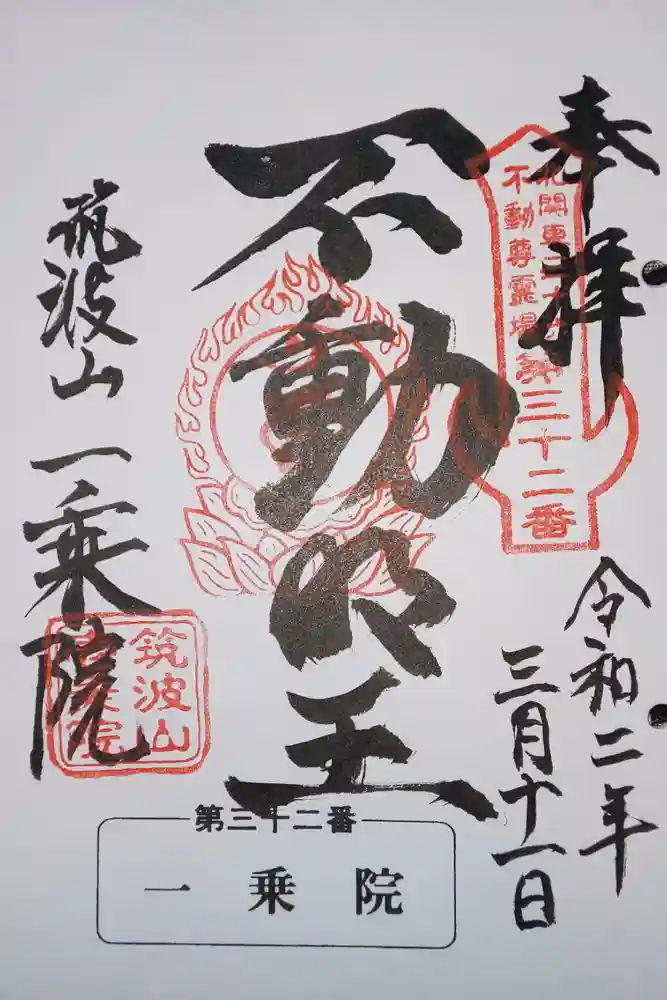 奉拝
北関東三十六
不動尊霊場第三十二番
不動明王
令和二年
三月十一日
筑波山一乗院
筑波山
一乗院
第三十二番
一乗院